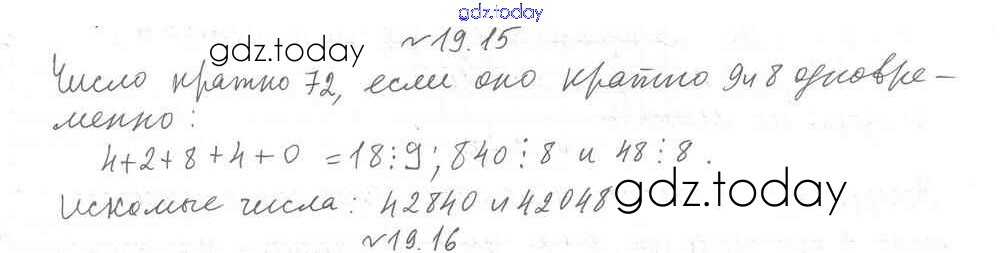 gdz.today
~19.15
gdz.today
Число кратно 72, если оно кратно 9 и 8 одновре-
менно:
4+2+8+4+0 = 18⋮9; 840⋮8 и 48⋮8.
Искомые числа: 42840 и 42048
gdz.today
~19.16